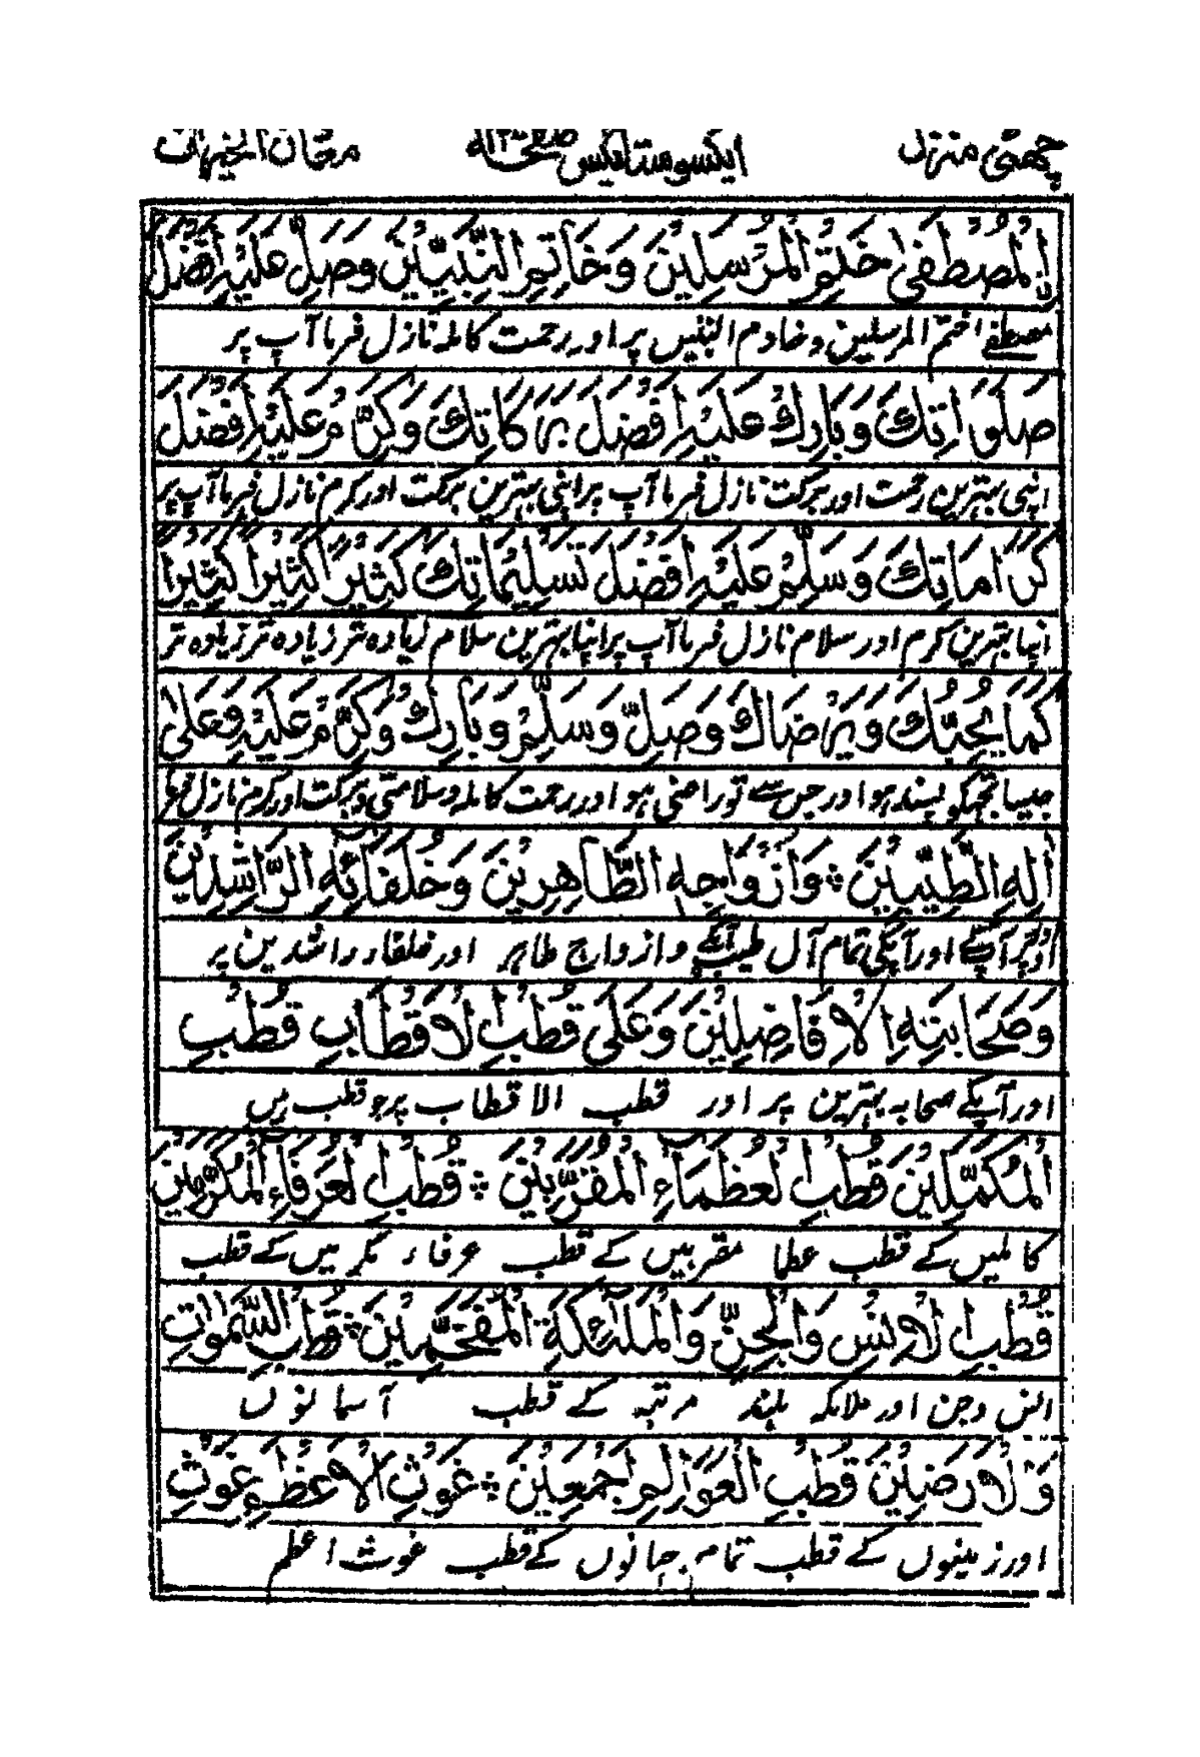 چھٹی منزل ایکسو ستائیس صفحہ
الْمُصْطَفٰی خَتْمِ الْمُرْسَلِیْنَ وَخَاتِمِ النَّبِیِّیْنَ وَصَلِّ عَلَیْهِ اَفْضَلَ
مصطفے اختم المرسلین وخادم النبیں پر اور رحمت کاملہ نازل فرما آپ پر
صَلَوَاتِكَ وَبَارِكْ عَلَیْهِ اَفْضَلَ بَرَكَاتِكَ وَكَرِّمْ عَلَیْهِ اَفْضَلَ
اپنی بہترین رحمت اور برکت نازل فرما آپ پر اپنی بہترین برکت اور کرم نازل فرما آپ پر
كَرَامَاتِكَ وَسَلِّمْ عَلَیْهِ اَفْضَلَ تَسْلِیْمَاتِكَ كَثِیْرًا كَثِیْرًا كَثِیْرًا
اپنا بہترین کرم اور سلام نازل فرما آپ پر اپنا بہترین سلام زیادہ تر زیادہ تر زیادہ تر
كَمَا یُحِبُّكَ وَیَرْضَاكَ وَصَلِّ وَسَلِّمْ وَبَارِكْ وَكَرِّمْ عَلَیْهِ وَعَلٰی
جیسا تجھکو پسند ہو اور جس سے تو راضی ہو اور رحمت کاملہ وسلامتی وبرکت اور کرم نازل فرما
اٰلِهِ الطَّیِّبِیْنَ وَاَزْوَاجِهِ الطَّاهِرِیْنَ وَخُلَفَائِهِ الرَّاشِدِیْنَ
اور آپکی تمام آل طیب وازواج طاہر اور خلفاء راشدین پر
وَصَحَابَتِهِ الْاَفَاضِلِیْنَ وَعَلٰی قُطْبِ الْاَقْطَابِ قُطْبِ
اور آپکے صحابہ بہترین پر اور قطب الاقطاب پر جو قطب ہیں
الْمُكَمَّلِیْنَ قُطْبِ الْعُظَمَاءِ الْمُقَرَّبِیْنَ قُطْبِ الْعُرَفَاءِ الْمُكَرَّمِیْنَ
کاملیں کے قطب عظما مقربیں کے قطب عرفاء مکرمیں کے قطب
قُطْبِ الْاِنْسِ وَالْجِنِّ وَالْمَلٰٓئِكَةِ الْمُفَخَّمِیْنَ قُطْبِ السَّمٰوَاتِ
انس وجن اور ملائکہ بلند مرتبہ کے قطب آسمانوں
وَالْاَرْضِیْنَ قُطْبِ الْعَوَالِمِ اَجْمَعِیْنَ غَوْثِ الْاَعْظَمِ غَوْثِ
اور زمینوں کے قطب تمام جہانوں کے قطب غوث اعظم